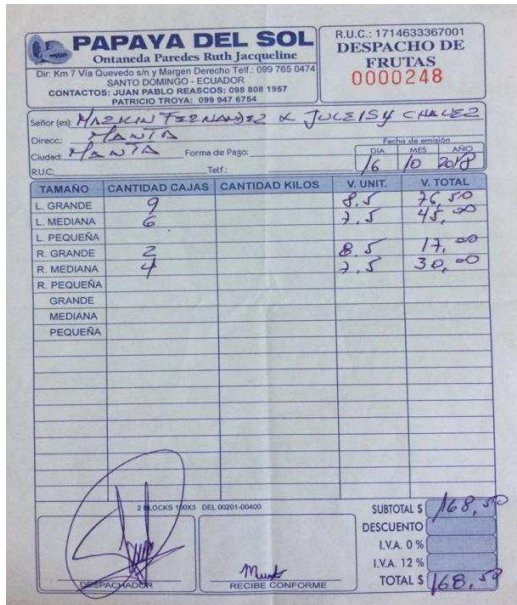 PAPAYA DEL SOL
Ontaneda Paredes Ruth Jacqueline
Dir: Km 7 Vía Quevedo s/n y Margen Derecho Telf.: 099 765 0474
SANTO DOMINGO - ECUADOR
CONTACTOS: JUAN PABLO REASCOS: 098 808 1957
PATRICIO TROYA: 099 947 6754
R.U.C.: 1714633367001
DESPACHO DE
FRUTAS
0000248
Señor (es) FERNANDEZ & JULEISY CHAVEZ
Direcc: MANTA
Ciudad: MANTA Forma de Pago:
R.U.C: Telf.:
Fecha de emisión
DIA MES AÑO
16 10 2018
TAMAÑO CANTIDAD CAJAS CANTIDAD KILOS V. UNIT. V. TOTAL
L. GRANDE 9 8.5 76,50
L. MEDIANA 6 7.5 45,00
L. PEQUEÑA
R. GRANDE 2 8.5 17,00
R. MEDIANA 4 7.5 30,00
R. PEQUEÑA
GRANDE
MEDIANA
PEQUEÑA
2 BLOCKS 100X3 DEL 00201-00400
SUBTOTAL $ 168,50
DESCUENTO
I.V.A. 0 %
I.V.A. 12 %
TOTAL $ 168,50
DESPACHADOR
RECIBE CONFORME